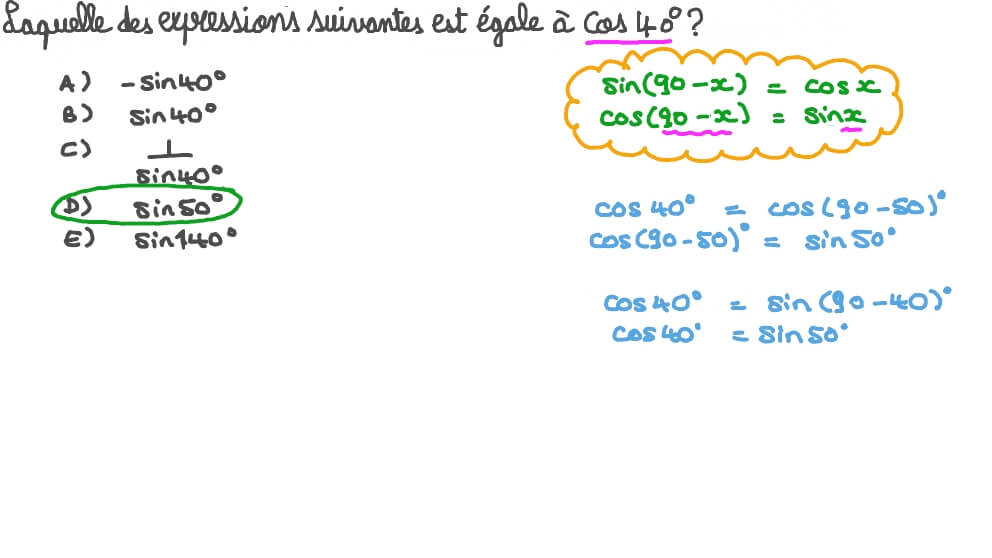 Laquelle des expressions suivantes est égale à cos 40° ?
A) -sin40°
B) sin40°
C) 1
sin40°
D) sin50°
E) sin140°
sin(90-x) = cosx
cos(90-x) = sinx
cos40° = cos(90-50)°
cos(90-50)° = sin50°
cos40° = sin(90-40)°
cos40° = sin50°